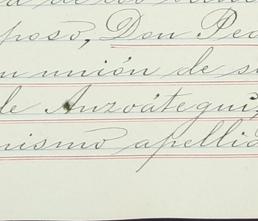 poso, Don Pe
unión de s
de Anzoátegui,
mismo apellid